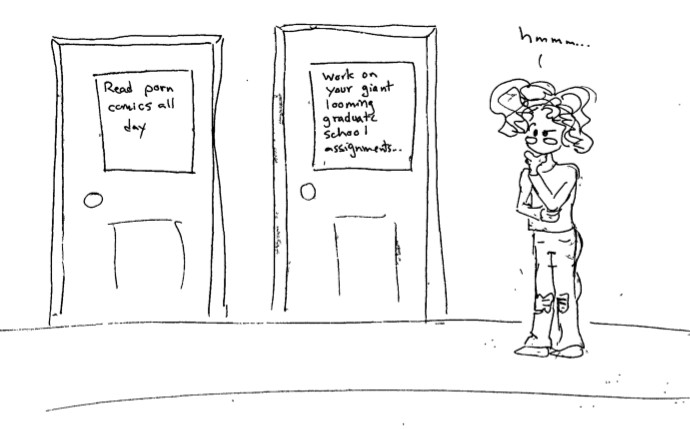 hmmm...
Read porn
comics all
day
Work on
your giant
looming
graduate
school
assignments...